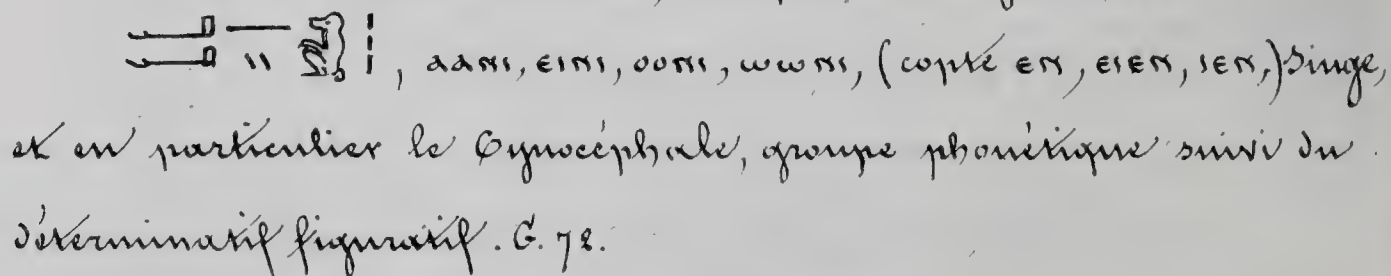 , ⲁⲁⲛⲓ, ⲉⲓⲛⲓ, ⲟⲟⲛⲓ, ⲱⲱⲛⲓ, (copte ⲉⲛ, ⲉⲓⲉⲛ, ⲓⲉⲛ,) Singe,
et en particulier le Cynocéphale, groupe phonétique suivi du
déterminatif figuratif. G. 72.